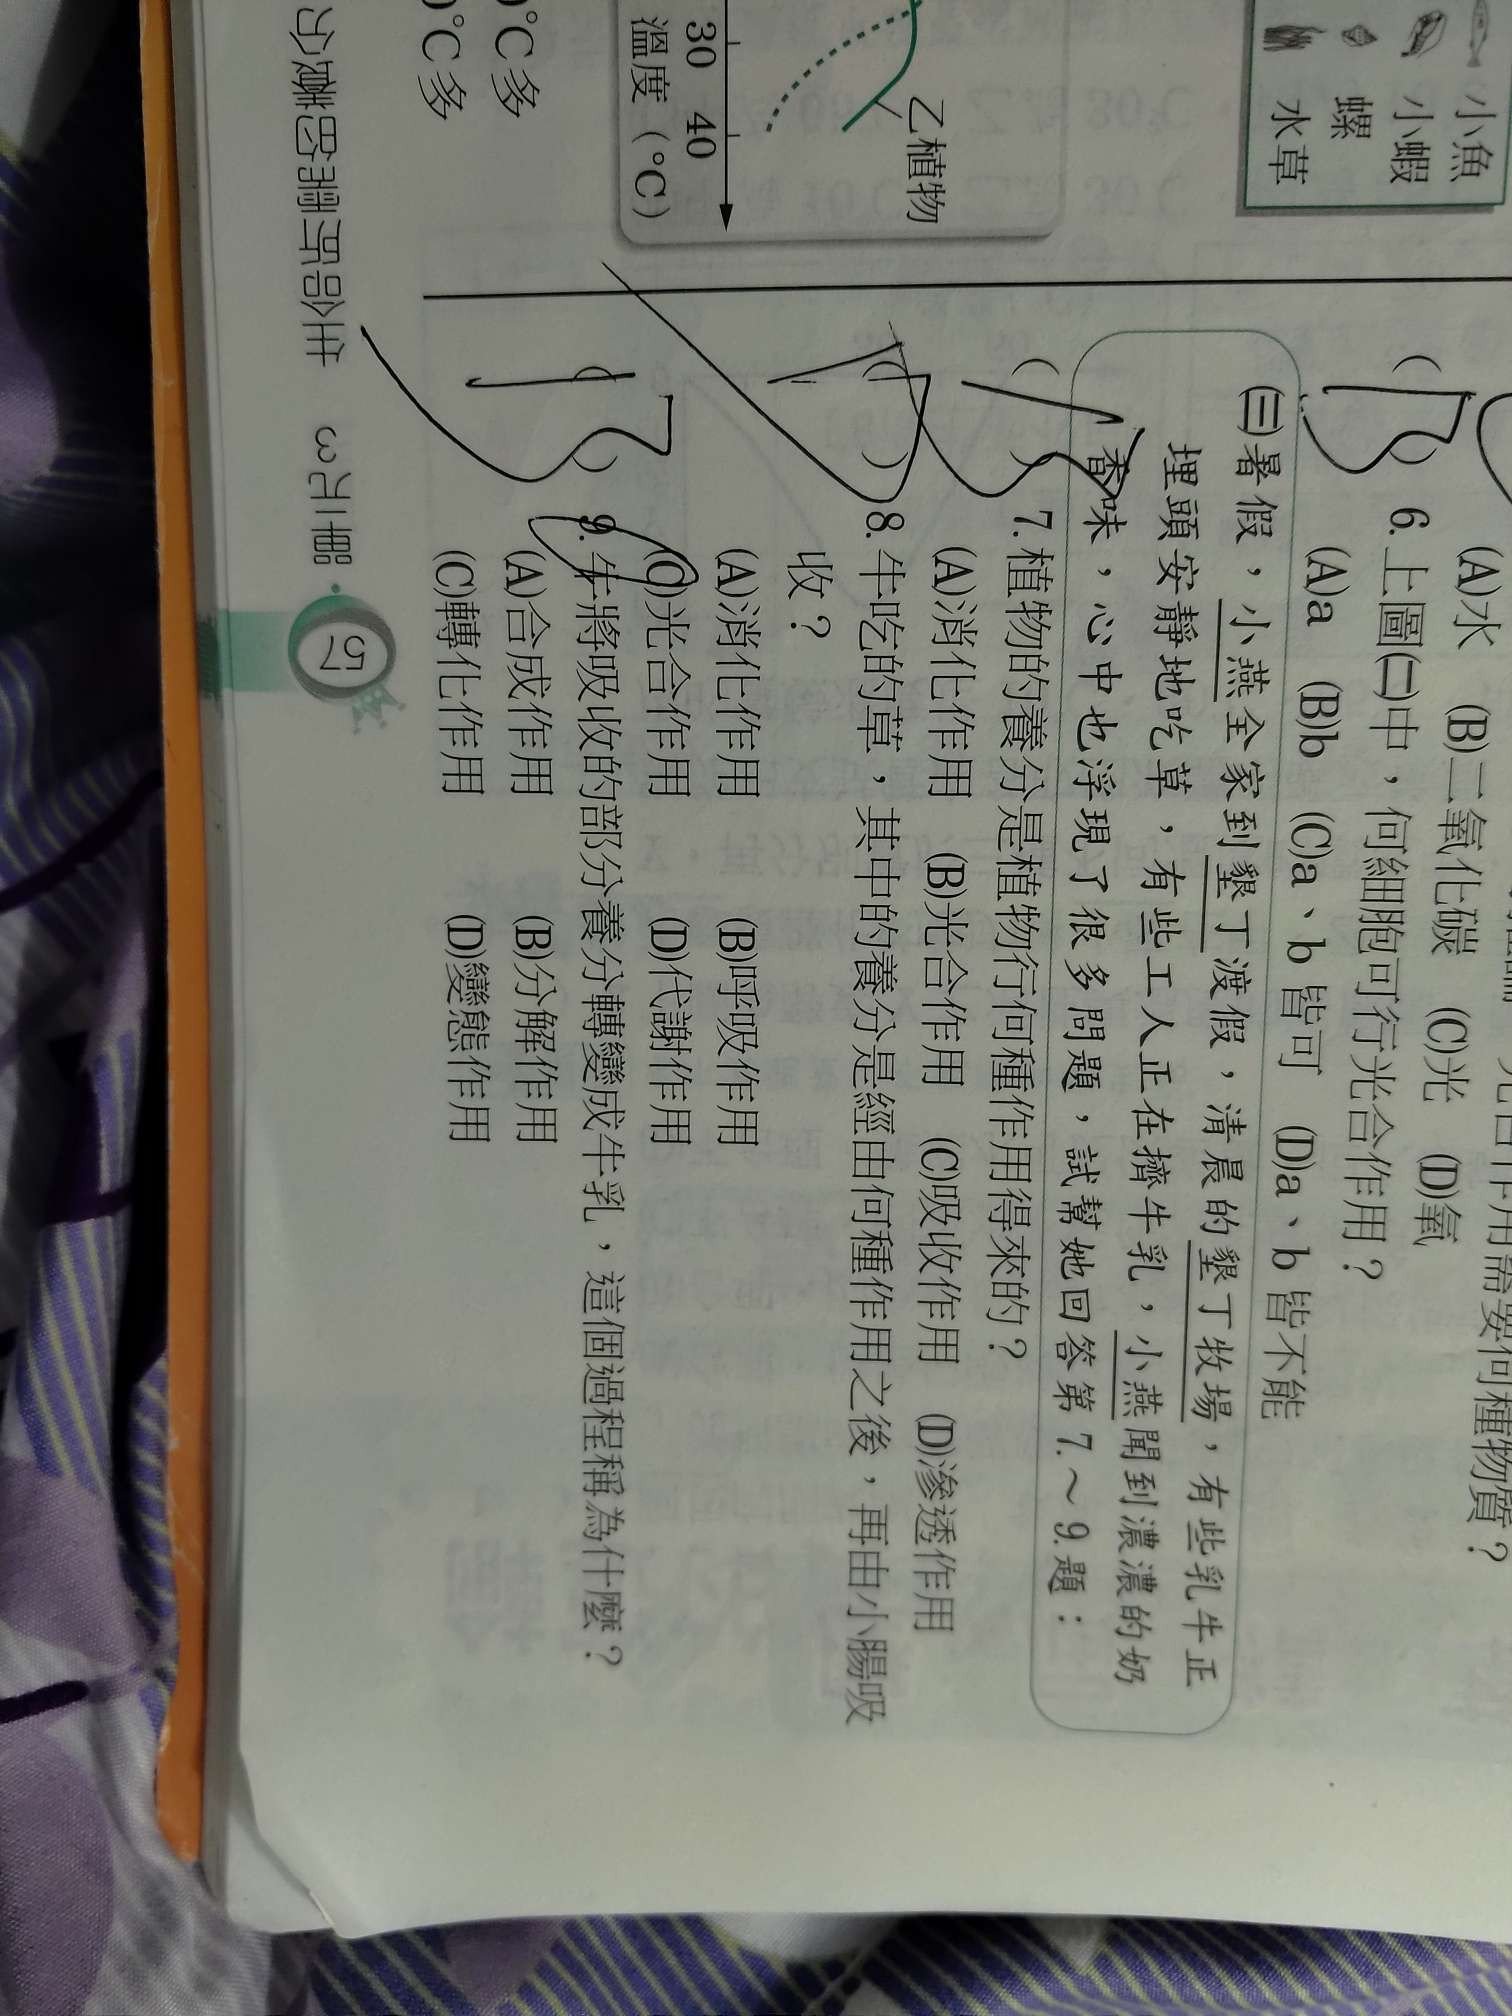 小魚
小蝦
螺
水草
乙植物
30 40
溫度（℃）
℃多
℃多
(A)水 (B)二氧化碳 (C)光 (D)氧
6.上圖㈡中，何細胞可行光合作用？
(A)a (B)b (C)a、b皆可 (D)a、b皆不能
㈢暑假，小燕全家到墾丁渡假，清晨的墾丁牧場，有些乳牛正
埋頭安靜地吃草，有些工人正在擠牛乳，小燕聞到濃濃的奶
香味，心中也浮現了很多問題，試幫她回答第7.～9.題：
( )7.植物的養分是植物行何種作用得來的？
(A)消化作用 (B)光合作用 (C)吸收作用 (D)滲透作用
( )8.牛吃的草，其中的養分是經由何種作用之後，再由小腸吸
收？
(A)消化作用 (B)呼吸作用
(C)光合作用 (D)代謝作用
( )9.牛將吸收的部分養分轉變成牛乳，這個過程稱為什麼？
(A)合成作用 (B)分解作用
(C)轉化作用 (D)變態作用
單元3 生命所需的養分
57